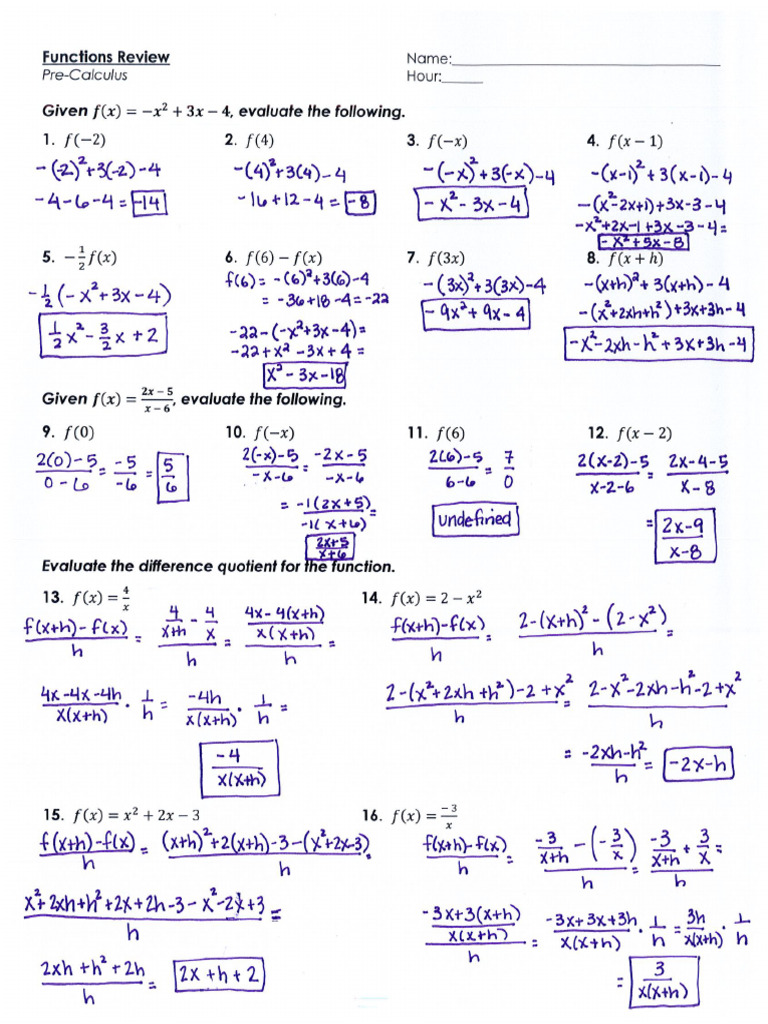 Functions Review
Name:
Pre-Calculus
Hour:
Given f(x) = −x² + 3x − 4, evaluate the following.
1. f(−2)
-(-2)²+3(-2)-4
-4-6-4=-14
2. f(4)
-(4)²+3(4)-4
-16+12-4=-8
3. f(−x)
-(-x)²+3(-x)-4
-x²-3x-4
4. f(x − 1)
-(x-1)²+3(x-1)-4
-(x²-2x+1)+3x-3-4
-x²+2x-1+3x-3-4=
-x²+5x-8
5. −1/2 f(x)
-1/2(-x²+3x-4)
1/2x²-3/2x+2
6. f(6) − f(x)
f(6)=-(6)²+3(6)-4
=-36+18-4=-22
-22-(-x²+3x-4)=
-22+x²-3x+4=
x²-3x-18
7. f(3x)
-(3x)²+3(3x)-4
-9x²+9x-4
8. f(x + h)
-(x+h)²+3(x+h)-4
-(x²+2xh+h²)+3x+3h-4
-x²-2xh-h²+3x+3h-4
Given f(x) = (2x−5)/(x−6), evaluate the following.
9. f(0)
(2(0)-5)/(0-6)=-5/-6=5/6
10. f(−x)
(2(-x)-5)/(-x-6)=(-2x-5)/(-x-6)
=(-1(2x+5))/(-1(x+6))=
(2x+5)/(x+6)
11. f(6)
(2(6)-5)/(6-6)=7/0
undefined
12. f(x − 2)
(2(x-2)-5)/(x-2-6)=(2x-4-5)/(x-8)
=(2x-9)/(x-8)
Evaluate the difference quotient for the function.
13. f(x) = 4/x
(f(x+h)-f(x))/h=(4/(x+h)-4/x)/h=((4x-4(x+h))/(x(x+h)))/h=
(4x-4x-4h)/(x(x+h))·1/h=-4h/(x(x+h))·1/h=
-4/(x(x+h))
14. f(x) = 2 − x²
(f(x+h)-f(x))/h=(2-(x+h)²-(2-x²))/h=
(2-(x²+2xh+h²)-2+x²)/h=(2-x²-2xh-h²-2+x²)/h
=(-2xh-h²)/h=-2x-h
15. f(x) = x² + 2x − 3
(f(x+h)-f(x))/h=((x+h)²+2(x+h)-3-(x²+2x-3))/h=
(x²+2xh+h²+2x+2h-3-x²-2x+3)/h=
(2xh+h²+2h)/h=2x+h+2
16. f(x) = −3/x
(f(x+h)-f(x))/h=(-3/(x+h)-(-3/x))/h=(-3/(x+h)+3/x)/h=
((-3x+3(x+h))/(x(x+h)))/h=(-3x+3x+3h)/(x(x+h))·1/h=3h/(x(x+h))·1/h
=3/(x(x+h))